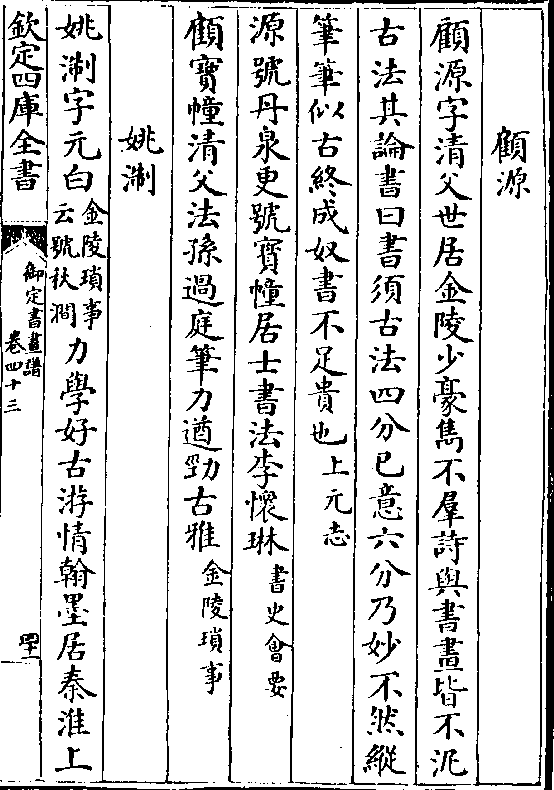 顧源
顧源字清父世居金陵少豪雋不羣詩與書畫皆不泥
古法其論書曰書須古法四分已意六分乃妙不然縱
筆筆似古終成奴書不足貴也上元志
源號丹泉更號寳幢居士書法李懷琳書史會要
顧寳幢清父法孫過庭筆力遒勁古雅金陵瑣事
姚淛
姚淛字元白金陵瑣事云號秋澗力學好古游情翰墨居秦淮上
欽定四庫全書
御定書畫譜
卷四十三